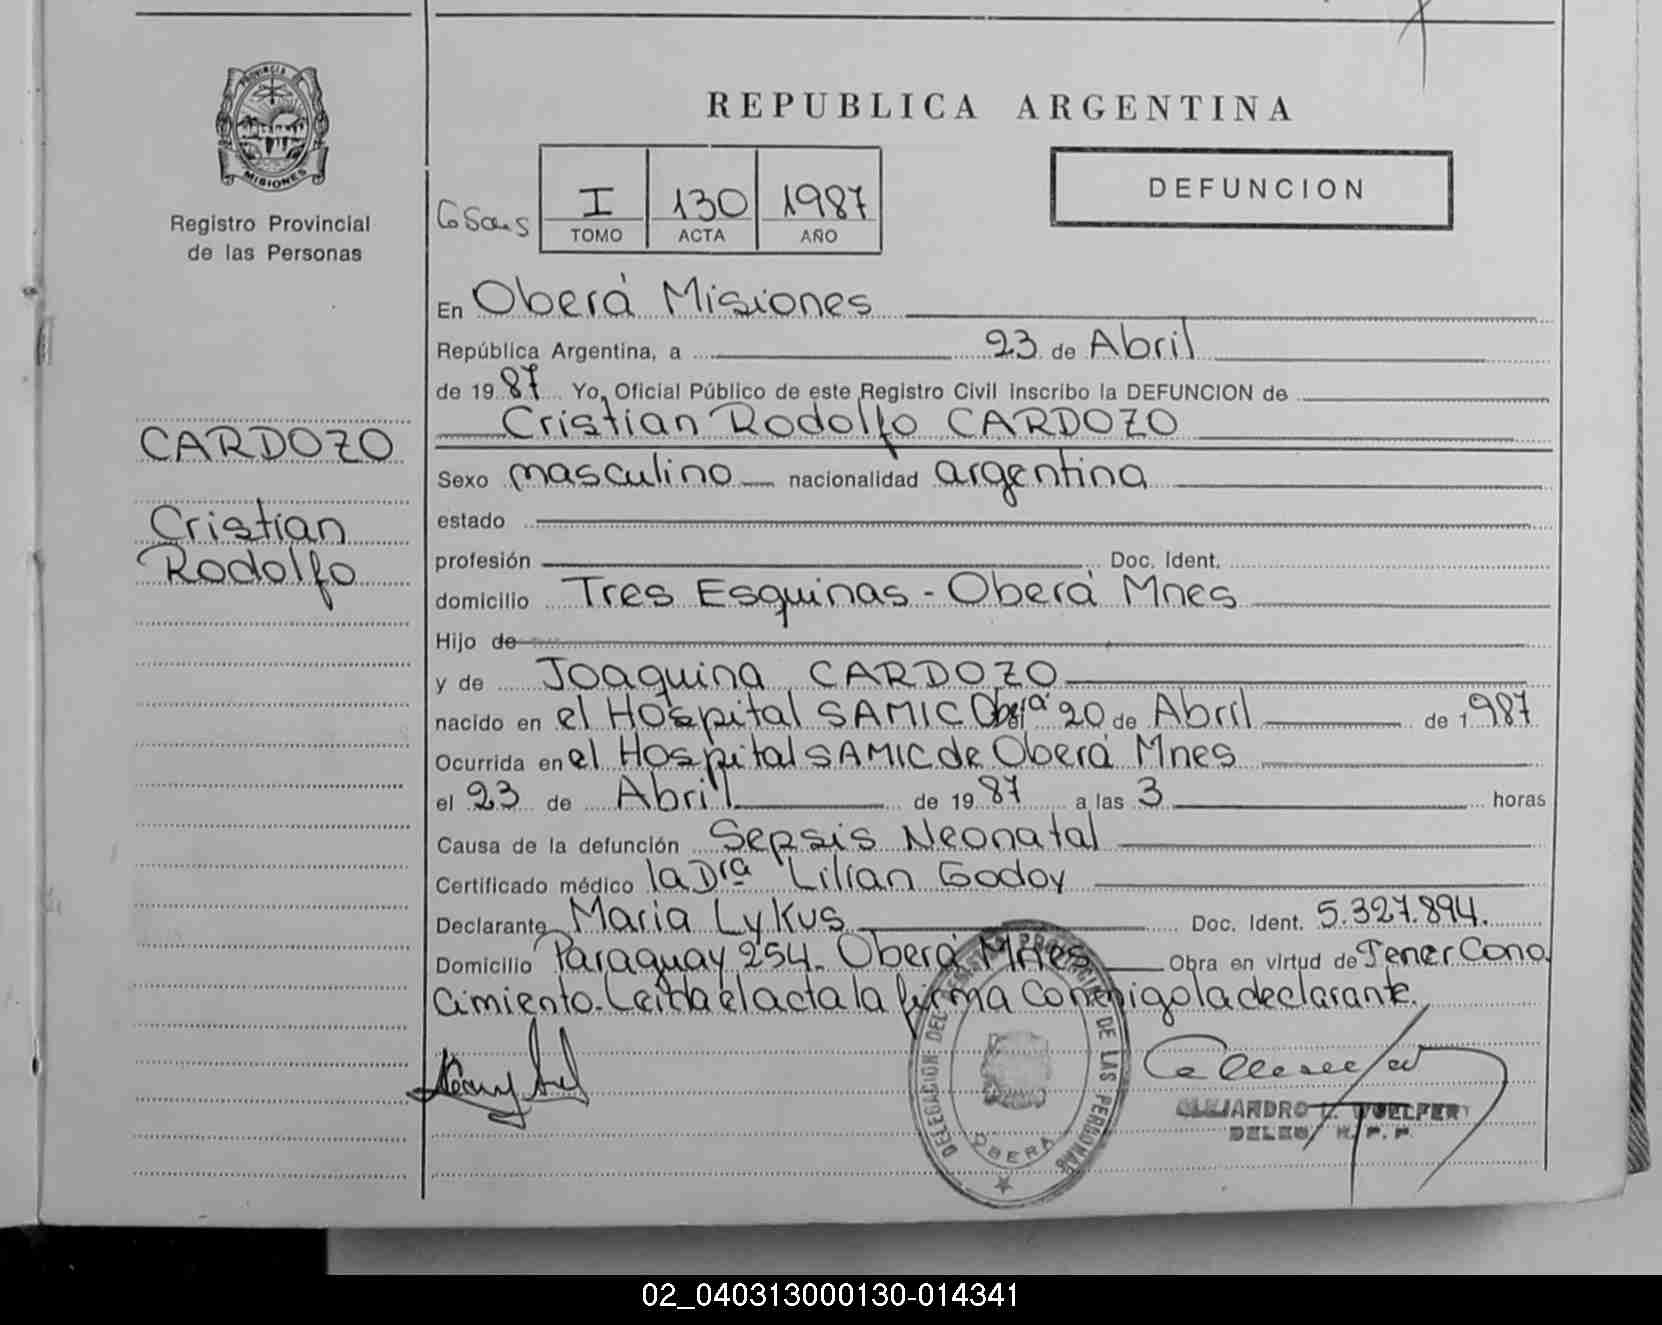 PROVINCIA DE
MISIONES
Registro Provincial
de las Personas
CARDOZO
Cristian
Rodolfo
REPUBLICA ARGENTINA
I 130 1987
TOMO ACTA AÑO
DEFUNCION
En Oberá Misiones
República Argentina, a 23 de Abril
de 1987 Yo, Oficial Público de este Registro Civil inscribo la DEFUNCION de
Cristian Rodolfo CARDOZO
Sexo masculino nacionalidad argentina
estado
profesión Doc. Ident.
domicilio Tres Esquinas - Oberá Mnes
Hijo de
y de Joaquina CARDOZO
nacido en el Hospital SAMIC Oberá 20 de Abril de 1987
Ocurrida en el Hospital SAMIC de Oberá Mnes
el 23 de Abril de 1987 a las 3 horas
Causa de la defunción Sepsis Neonatal
Certificado médico la Dra Lilian Godoy
Declarante Maria Lykus Doc. Ident. 5.327.894.
Domicilio Paraguay 254. Oberá Mnes Obra en virtud de Tener Cono
cimiento. Leida el acta la firma conmigo la declarante.
DELEGACION DEL REGISTRO PROVINCIAL DE LAS PERSONAS
OBERA
ALEJANDRO
DELEG. R. P. P.
02_040313000130-014341